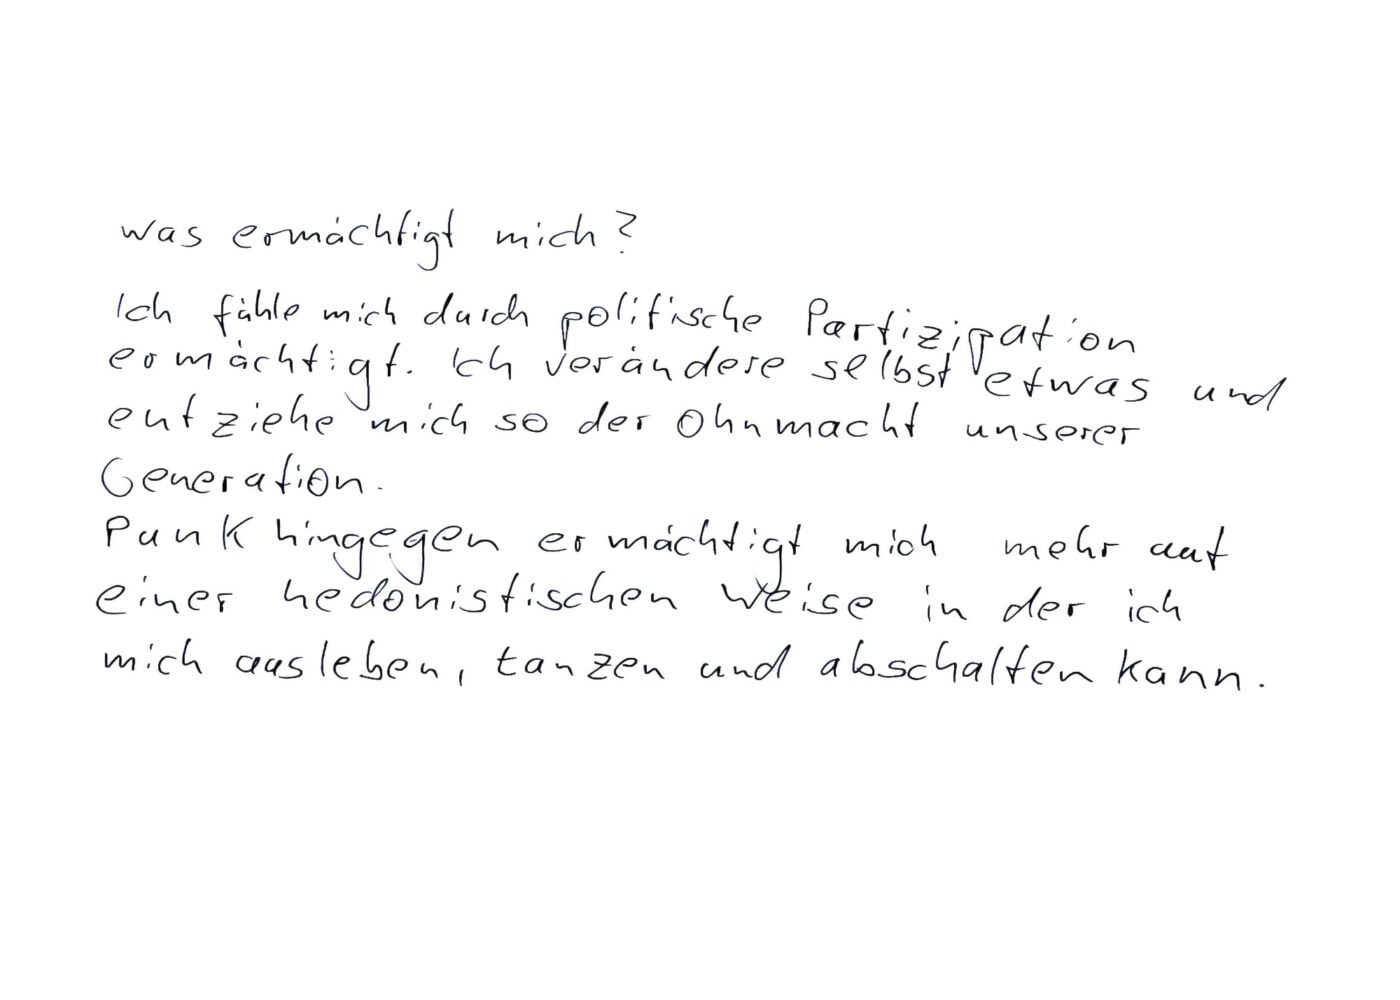 was ermächtigt mich?
Ich fühle mich durch politische Partizipation
ermächtigt. Ich verändere selbst etwas und
entziehe mich so der Ohnmacht unserer
Generation.
Punk hingegen ermächtigt mich mehr auf
einer hedonistischen Weise in der ich
mich ausleben, tanzen und abschalten kann.